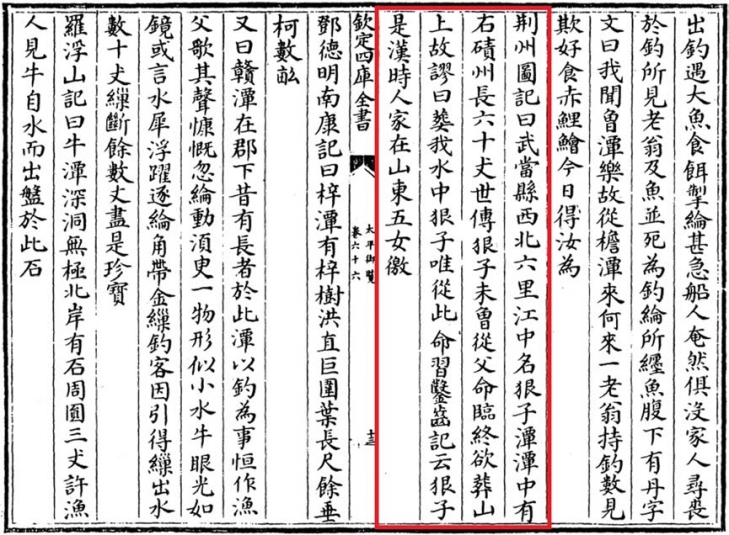 出釣遇大魚食餌掣綸甚急船人奄然俱沒家人尋喪
於釣所見老翁及魚並死為釣綸所纒魚腹下有丹字
文曰我聞曾潭樂故從檐潭來何來一老翁持釣數見
欺好食赤鯉鱠今日得汝為
荆州圖記曰武當縣西北六里江中名狠子潭潭中有
右磧州長六十丈世傳狠子未曾從父命臨終欲葬山
上故謬曰葬我水中狠子唯從此命習鑿齒記云狠子
是漢時人家在山東五女徼
欽定四庫全書
太平御覽
卷六十六
十三
鄧德明南康記曰梓潭有梓樹洪直巨圍葉長尺餘垂
柯數畝
又曰贛潭在郡下昔有長者於此潭以釣為事恒作漁
父歌其聲慷慨忽綸動湏臾一物形似小水牛眼光如
鏡或言水犀浮躍逐綸角帶金繅釣客因引得繅出水
數十丈繅斷餘數丈盡是珍寶
羅浮山記曰牛潭深洞無極北岸有石周圓三丈許漁
人見牛自水而出盤於此石